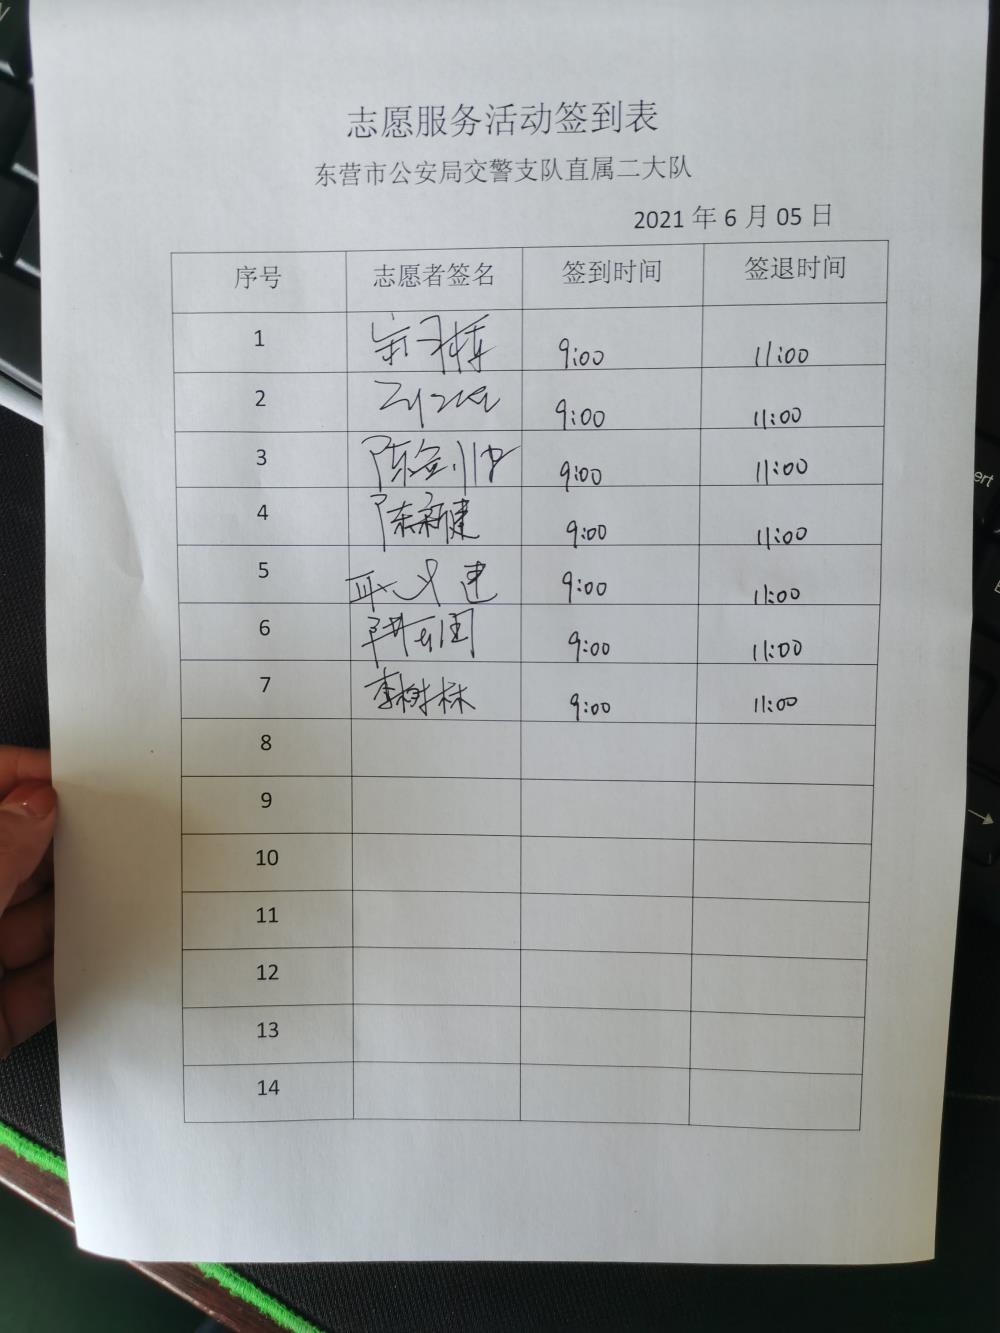 志愿服务活动签到表
东营市公安局交警支队直属二大队
2021 年 6 月 05 日
序号 志愿者签名 签到时间 签退时间
1 9:00 11:00
2 9:00 11:00
3 9:00 11:00
4 陈新建 9:00 11:00
5 9:00 11:00
6 9:00 11:00
7 李树林 9:00 11:00
8
9
10
11
12
13
14